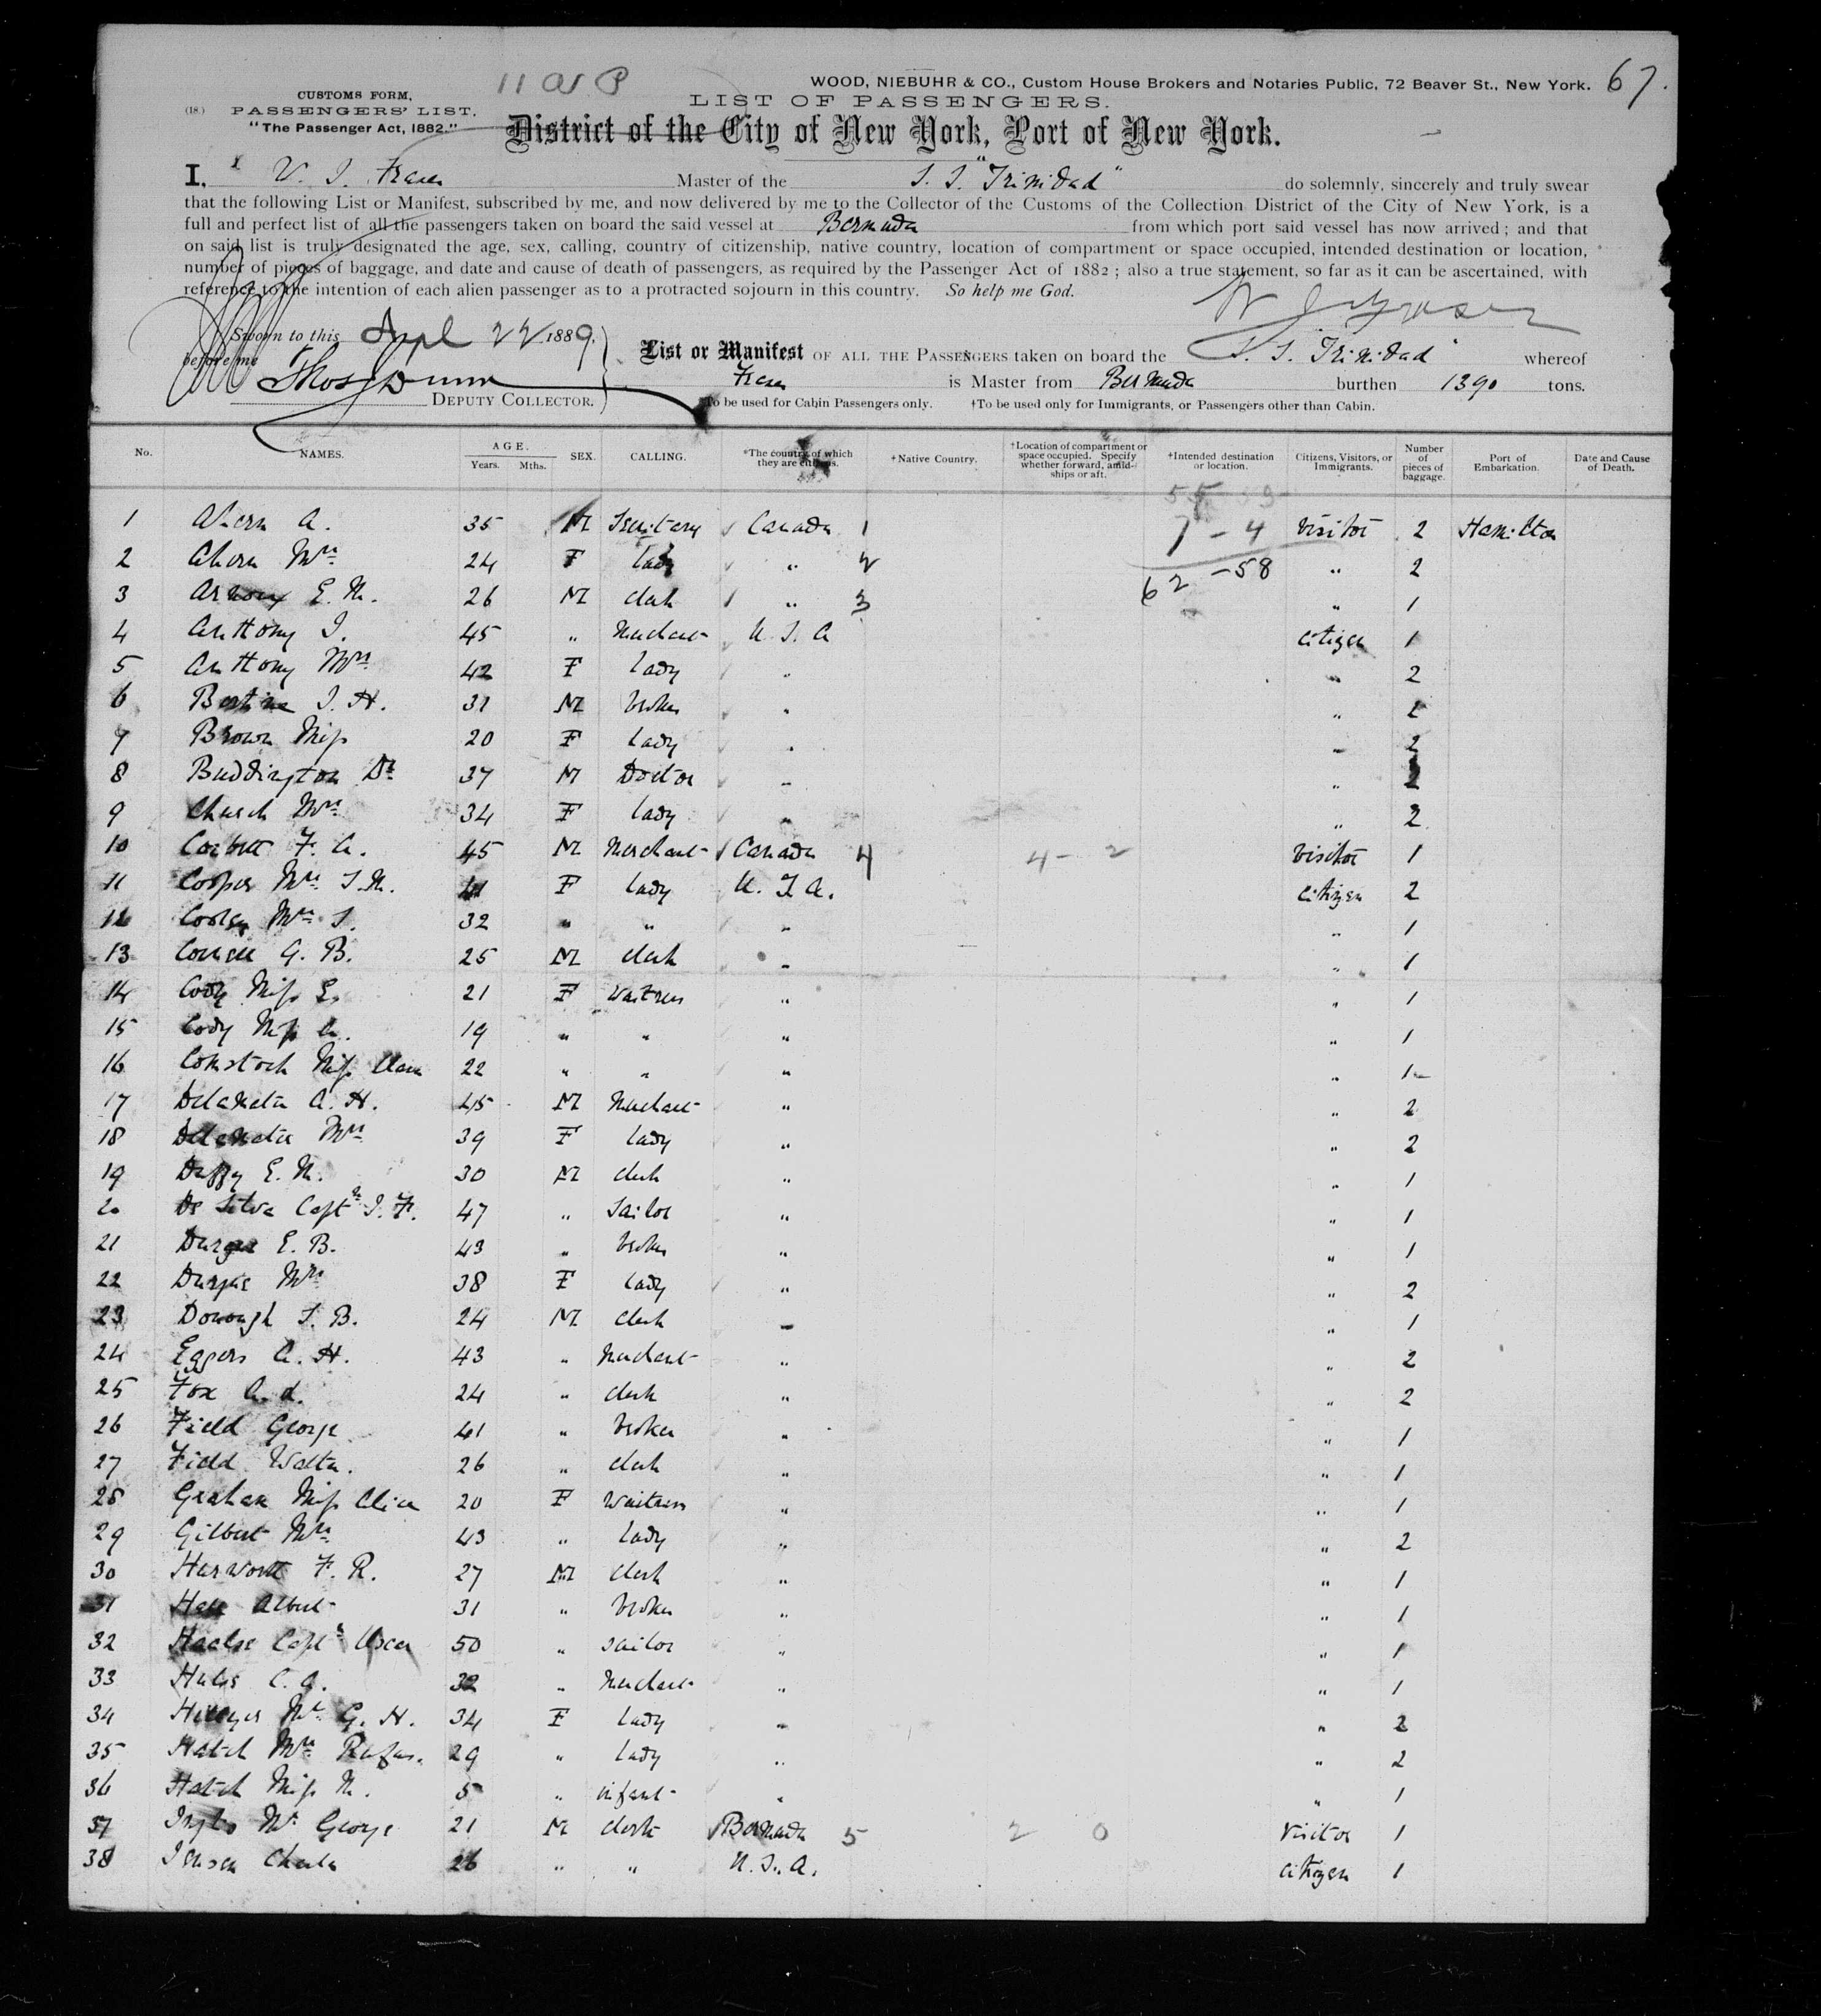 11 a 8
WOOD, NIEBUHR & CO., Custom House Brokers and Notaries Public, 72 Beaver St., New York. 67.
CUSTOMS FORM,
(18.) PASSENGERS' LIST.
"The Passenger Act, 1882."
LIST OF PASSENGERS.
District of the City of New York, Port of New York.
I, W. J. Fraser Master of the S. S. "Trinidad" do solemnly, sincerely and truly swear
that the following List or Manifest, subscribed by me, and now delivered by me to the Collector of the Customs of the Collection District of the City of New York, is a
full and perfect list of all the passengers taken on board the said vessel at Bermuda from which port said vessel has now arrived; and that
on said list is truly designated the age, sex, calling, country of citizenship, native country, location of compartment or space occupied, intended destination or location,
number of pieces of baggage, and date and cause of death of passengers, as required by the Passenger Act of 1882; also a true statement, so far as it can be ascertained, with
reference to the intention of each alien passenger as to a protracted sojourn in this country. So help me God.
W J Fraser
Sworn to this Apl 22 1889.
before me
Thos Dunn
DEPUTY COLLECTOR.
List or Manifest OF ALL THE PASSENGERS taken on board the S. S. Trinidad" whereof
Fraser is Master from Bermuda burthen 1390 tons.
*To be used for Cabin Passengers only. †To be used only for Immigrants, or Passengers other than Cabin.
No. NAMES. AGE. Years. Mths. SEX. CALLING. *The country of which they are citizens. †Native Country. †Location of compartment or space occupied. Specify whether forward, amidships or aft. †Intended destination or location. Citizens, Visitors, or Immigrants. Number of pieces of baggage. Port of Embarkation. Date and Cause of Death.
55 59
1 Ahern A. 35 M Secretary Canada 1 7 - 4 Visitor 2 Hamilton
2 Ahern Mrs 24 F Lady " 2 62 - 58 " 2
3 E. M. 26 M Clerk " 3 " 1
4 Anthony J. 45 " Merchant U. S. A Citizen 1
5 Anthony Mrs 42 F Lady " " 2
6 Bertine J. H. 31 M broker " "
7 Brown Miss 20 F Lady " " 2
8 Buddington Dr 37 M Doctor " " 2
9 Church Mrs 34 F Lady " " 2
10 Corbett F. A. 45 M Merchant Canada 4 4 - 2 Visitor 1
11 Cooper Mrs S. M. 41 F Lady U. S. A. Citizen 2
12 Cooley Mrs S. 32 " " " " 1
13 Cornell G. B. 25 M Clerk " " 1
14 Cody Miss E. 21 F Waitress " " 1
15 Cody Miss A. 19 " " " " 1
16 Comstock Miss Clara 22 " " " " 1
17 Delamater A. H. 45 M Merchant " " 2
18 Delamater Mrs 39 F Lady " " 2
19 Duffy E. M. 30 M Clerk " " 1
20 De Silva Captn J. F. 47 " Sailor " " 1
21 E. B. 43 " broker " " 1
22 Mrs 38 F Lady " " 2
23 Donough S. B. 24 M Clerk " " 1
24 Eggers A. H. 43 " Merchant " " 2
25 Fox A. L. 24 " Clerk " " 2
26 Field George 41 " broker " " 1
27 Field Walter. 26 " Clerk " " 1
28 Graham Miss Alice 20 F Waitress " " 1
29 Gilbert Mrs 43 " Lady " " 2
30 Harworth F. R. 27 M Clerk " " 1
31 Albert 31 " broker " " 1
32 Capt 50 " sailor " " 1
33 C. A. 32 " Merchant " " 1
34 Hillyer Mrs G. H. 34 F Lady " " 2
35 Hatch Mrs Rufus. 29 " Lady " " 2
36 Hatch Miss M. 5 " infant " " 1
37 Mr George 21 M Clerk Bermuda 5 2 0 Visitor 1
38 Jensen Charles 26 " " U. S. A. Citizen 1